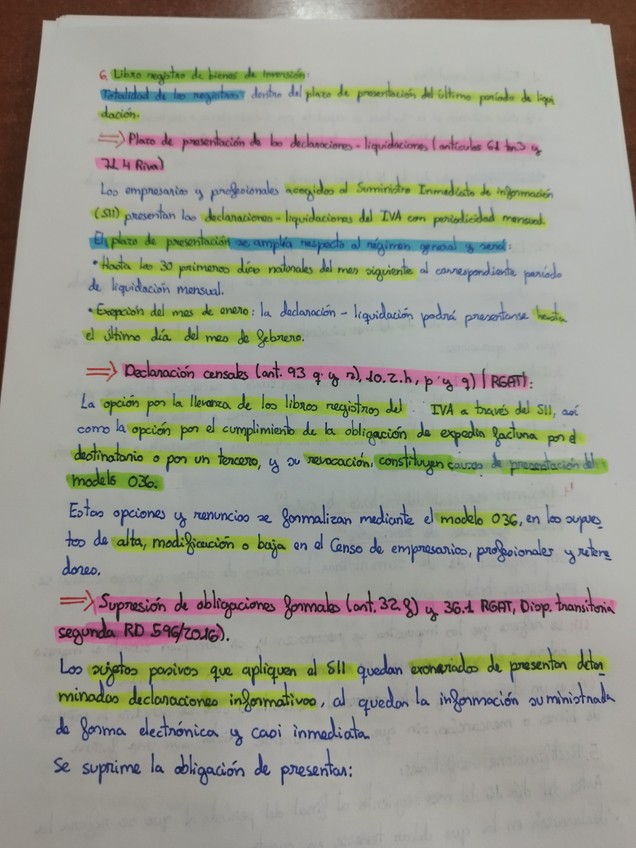 6. Libro registro de bienes de inversión:
Totalidad de los registros dentro del plazo de presentación del último periodo de liqui
dación.
⇒ Plazo de presentación de las declaraciones-liquidaciones (artículos 61 ter.3 y
71.4 Riva)
Los empresarios y profesionales acogidos al Suministro Inmediato de información
(SII) presentan las declaraciones-liquidaciones del IVA con periodicidad mensual.
El plazo de presentación se amplía respecto al régimen general y será:
• Hasta los 30 primeros días naturales del mes siguiente al correspondiente período
de liquidación mensual.
• Excepción del mes de enero: la declaración-liquidación podrá presentarse hasta
el último día del mes de febrero.
⇒ Declaración censales (art. 93 q y r), 10.2.h, p y q) (RGAT):
La opción por la llevanza de los libros registros del IVA a través del SII, así
como la opción por el cumplimiento de la obligación de expedir factura por el
destinatario o por un tercero, y su revocación, constituyen causas de presentación del
modelo 036.
Estas opciones y renuncias se formalizan mediante el modelo 036, en los supues
tos de alta, modificación o baja en el Censo de empresarios, profesionales y retene
dores.
⇒ Supresión de obligaciones formales (art. 32 f) y 36.1 RGAT, Disp. transitoria
segunda RD 596/2016).
Los sujetos pasivos que apliquen al SII quedan exonerados de presentar deter
minadas declaraciones informativas, al quedar la información suministrada
de forma electrónica y casi inmediata
Se suprime la obligación de presentar: